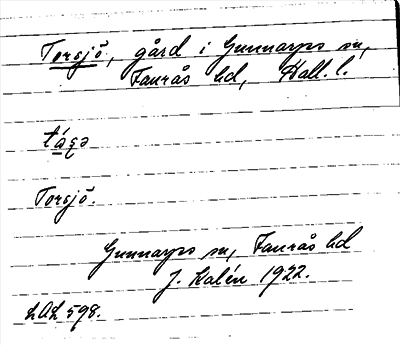 Torsjö, gård i Gunnarps sn,
Faurås hd, Hall. l.
tásə
Torsjö.
Gunnarps sn, Faurås hd
J. Kalén 1922.
LAL 598.